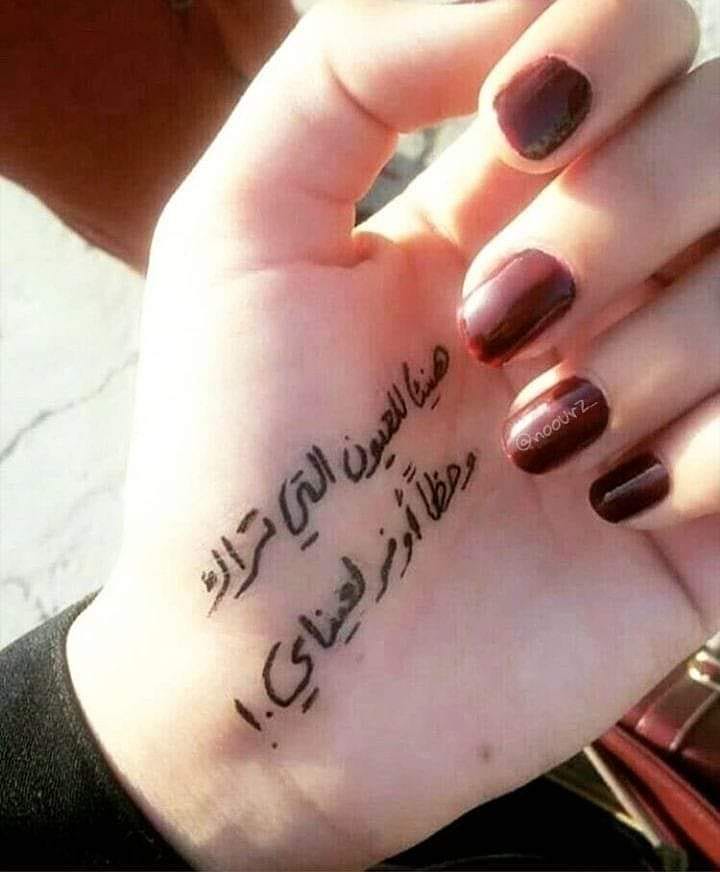 هنيئا للعيون التي تراك
وحظاً أوفر لعيناي.!
@noourz_